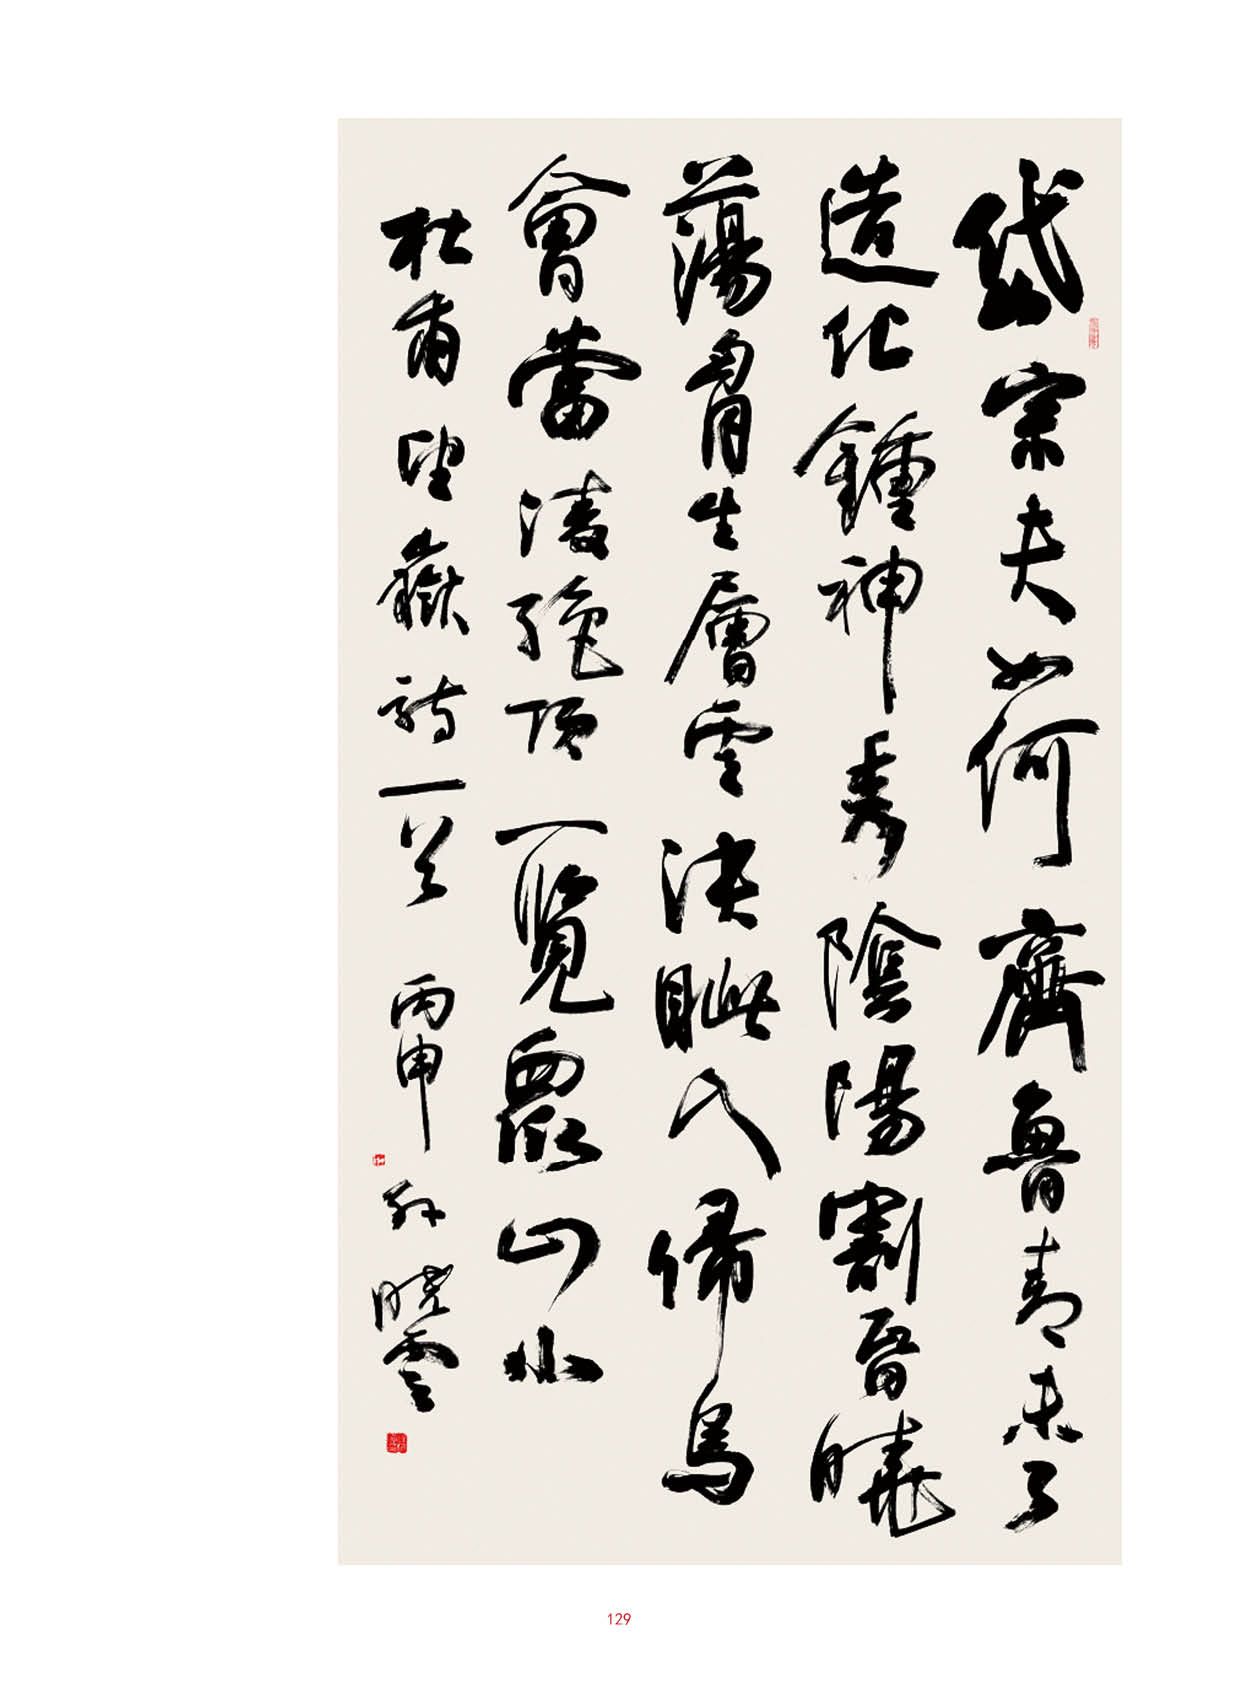 岱宗夫如何齊魯青未了
造化鍾神秀陰陽割昏曉
蕩胷生層雲決眦入歸鳥
會當凌絕頂一覽衆山小
杜甫望嶽詩一首 丙申 孫曉雲
129